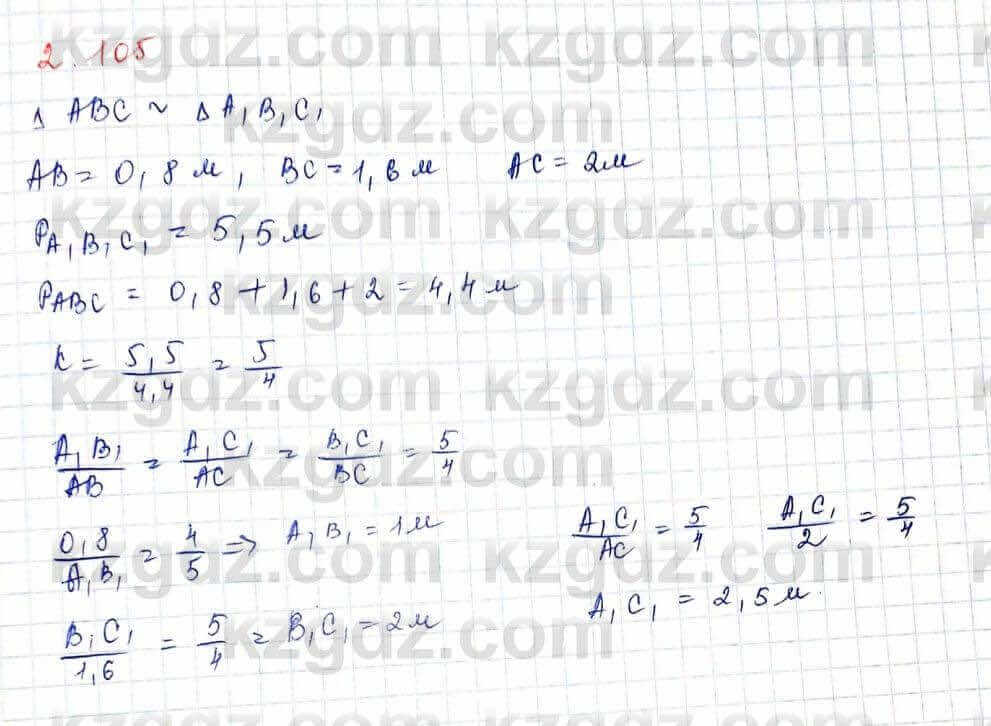 2.105
Δ ABC ~ Δ A₁B₁C₁
AB = 0,8 м, BC = 1,6 м AC = 2м
P_A₁B₁C₁ = 5,5 м
P_ABC = 0,8 + 1,6 + 2 = 4,4 м
k = 5,5/4,4 = 5/4
A₁B₁/AB = A₁C₁/AC = B₁C₁/BC = 5/4
0,8/A₁B₁ = 4/5 => A₁B₁ = 1м
B₁C₁/1,6 = 5/4 = B₁C₁ = 2м
A₁C₁/AC = 5/4 A₁C₁/2 = 5/4
A₁C₁ = 2,5 м.
kzgdz.com kzgdz.com
kzgdz.com
kzgdz.com kzgdz.com
kzgdz.com
kzgdz.com kzgdz.com
kzgdz.com
kzgdz.com kzgdz.com
kzgdz.com
kzgdz.com kzgdz.com